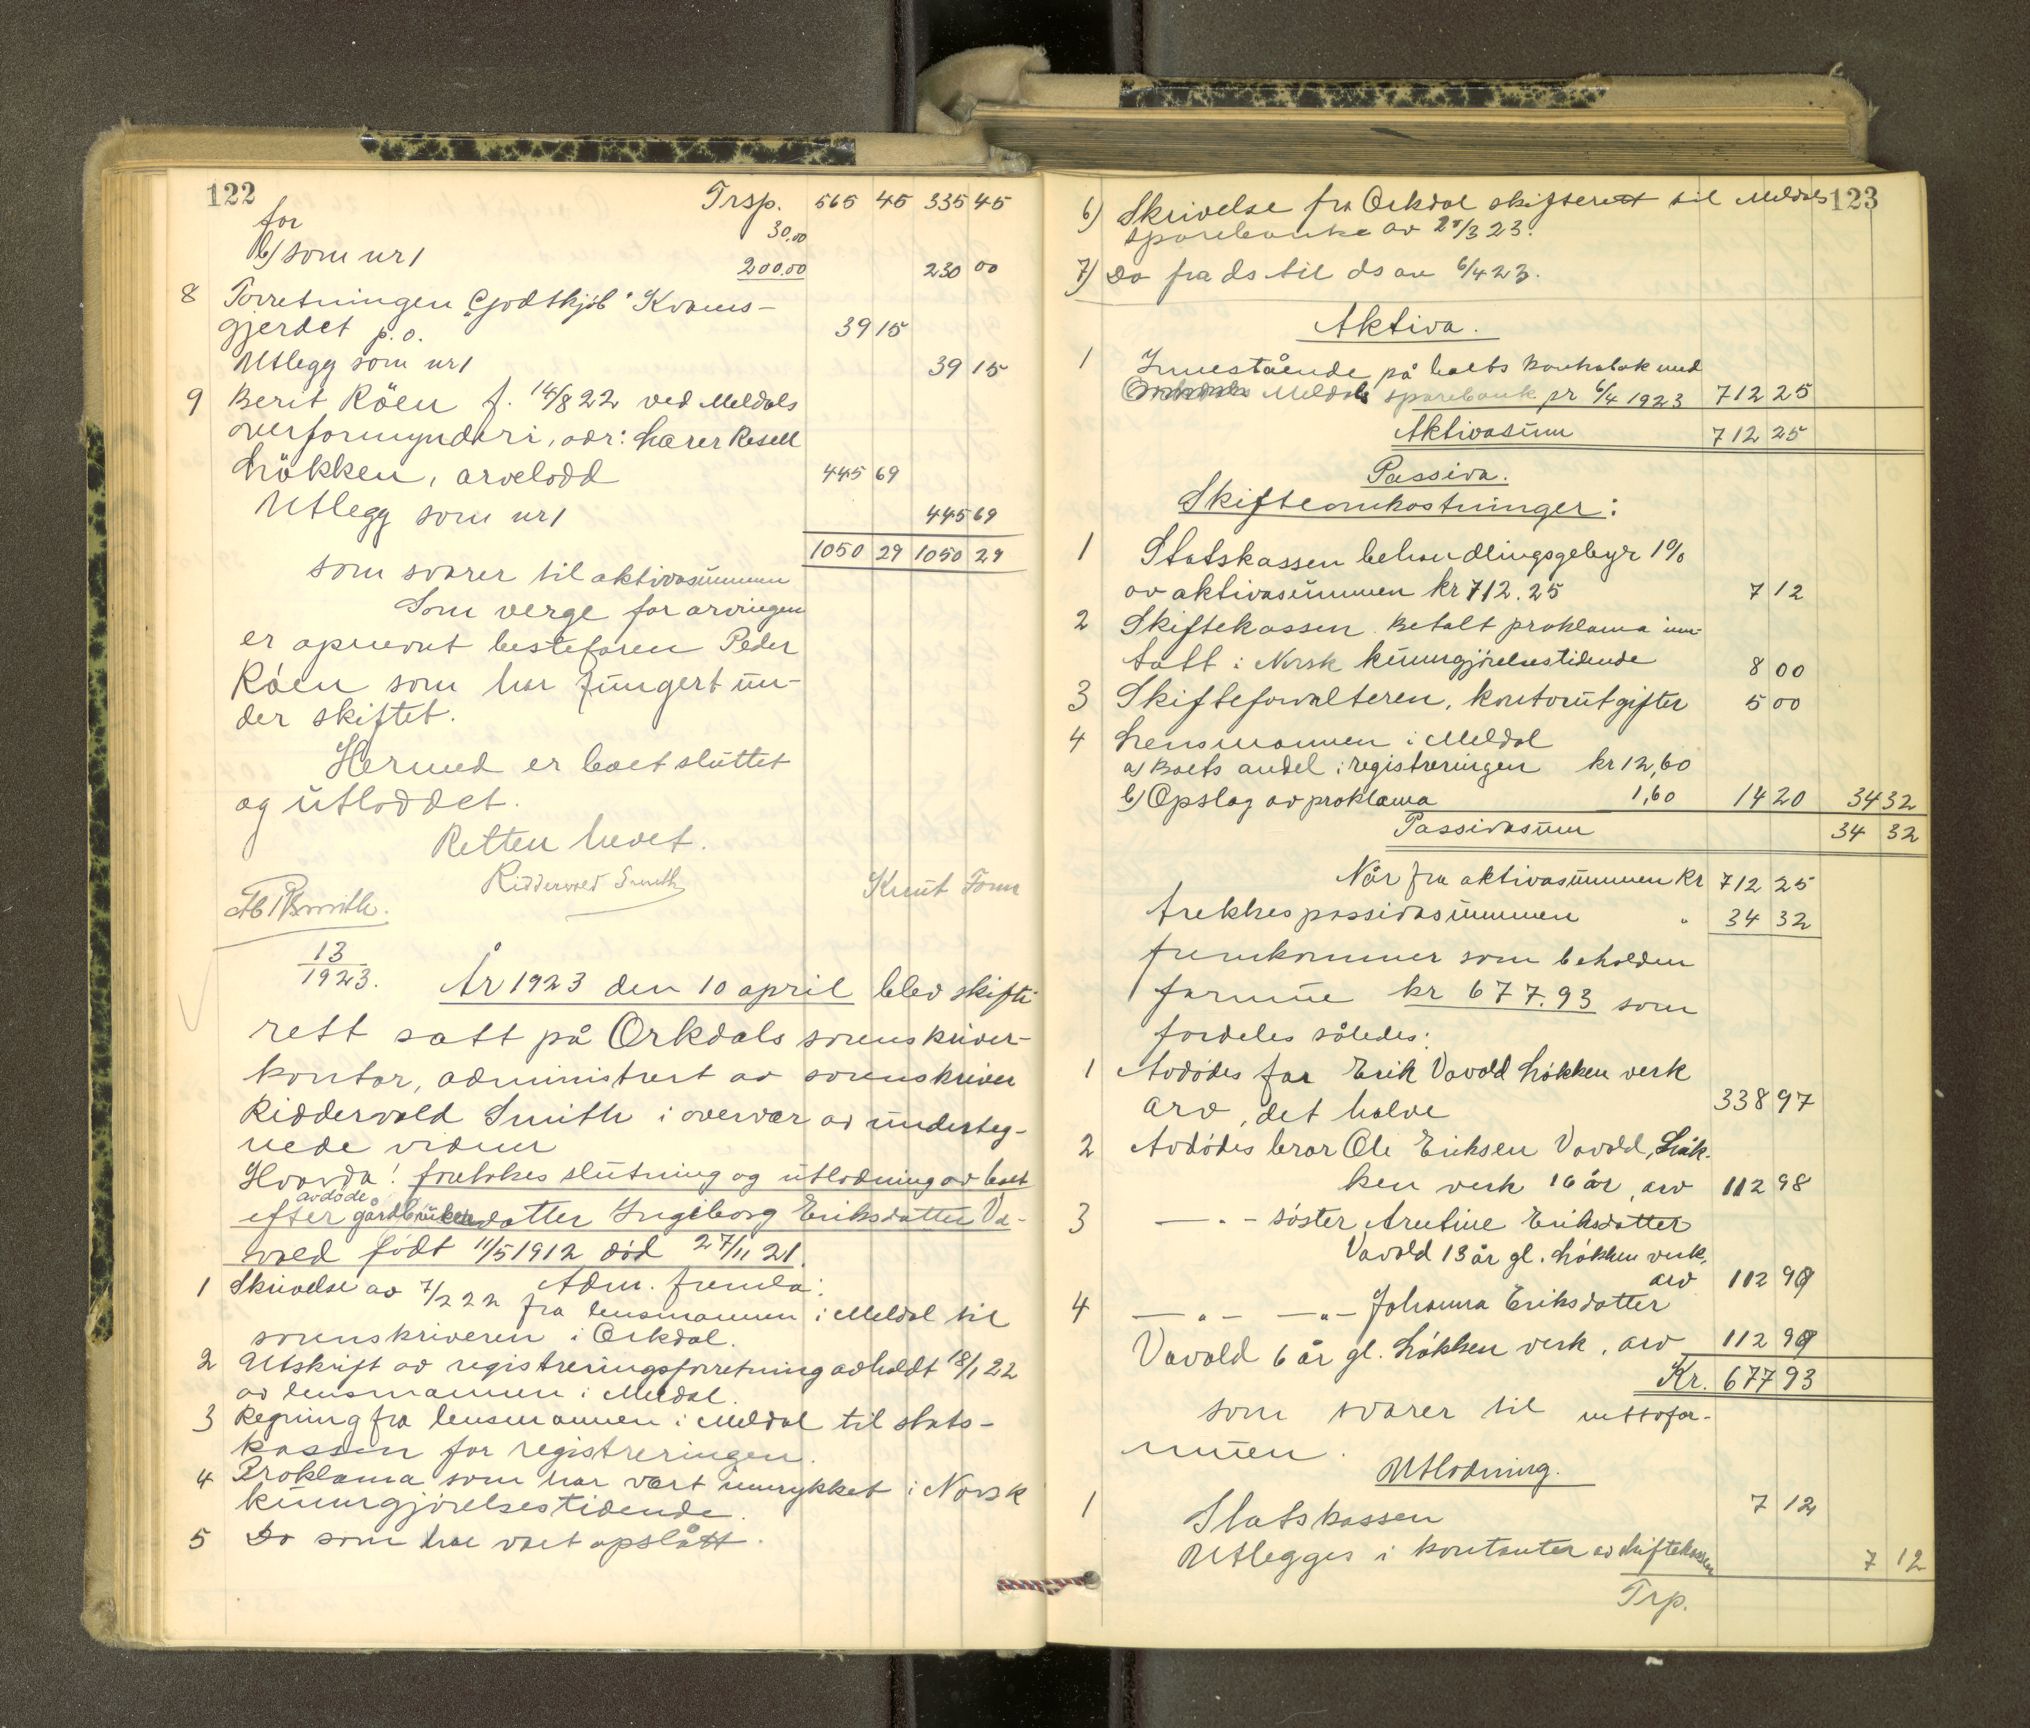 122
Trsp. 565 45 335 45
for 30.00
b) som nr 1 200.00 230 00
8 Forretningen "Godtkjöb" Kvams-
gjerdet p.o. 39 15
Utlegg som nr 1 39 15
9 Berit Röen f. 14/8 22 ved Meldals
overformynderi, adr: Lærer Resell
Lökken, arvelodd 445 69
Utlegg som nr 1 445 69
1050 29 1050 29
som svarer til aktivasummen
Som verge for arvingen
er opnevnt bestefaren Peder
Röen som har fungert un-
der skiftet.
Hermed er boet sluttet
og utloddet.
Retten hevet.
Ridderwold Smith Knut Fonn
13
1923.
År 1923 den 10 april blev skifte-
rett satt på Orkdals sorenskriver-
kontor, administrert av sorenskriver
Ridderwold Smith i overvær av underteg-
nede vidner
Hvorda! foretokes slutning og utlodning av boet
avdöde
efter gårdbruker datter Ingeborg Eriksdatter Va-
vold födt 11/5 1912 död 27/11 21.
Adm. fremla:
1 Skrivelse av 7/2 22 fra lensmannen i Meldal til
sorenskriveren i Orkdal.
2 Utskrift av registreringsforretning avholdt 18/1 22
av lensmannen i Meldal.
3 Regning fra lensmannen i Meldal til stats-
kassen for registreringen.
4 Proklama som har vært innrykket i Norsk
kunngjörelsestidende.
5 Do som har vært opslått.
123
6) Skrivelse fra Orkdal skifterett til Meldals
sparebank av 2/3 23.
7) Do fra ds til ds av 6/4 23.
Aktiva.
1 Innestående på boets bankbok med
Meldals sparebank pr 6/4 1923 712 25
Aktivasum 712 25
Passiva.
Skifteomkostninger:
1 Statskassen behandlingsgebyr 1%
av aktivasummen kr 712.25 7 12
2 Skiftekassen. Betalt proklama inn-
tatt i Norsk kunngjörelsestidende 8 00
3 Skifteforvalteren, kontorutgifter 5 00
4 Lensmannen i Meldal
a) Boets andel i registreringen kr 12,60
b) Opslag av proklama 1,60 14 20 34 32
Passivasum 34 32
Når fra aktivasummen kr 712 25
trekkes passivasummen " 34 32
fremkommer som beholden
formue kr 677.93 som
fordeles således:
1 Avdödes far Erik Vavold Lökken verk
arv, det halve 338 97
2 Avdödes bror Ole Eriksen Vavold, Lök-
ken verk 16 år, arv 112 98
3 — " — söster Arntine Eriksdatter
Vavold 13 år gl. Lökken verk,
arv 112 99
4 — " — — " — Johanna Eriksdatter
Vavold 6 år gl. Lökken verk, arv 112 99
Kr. 677 93
som svarer til nettofor-
muen.
Utlodning.
1 Statskassen 7 12
Utlegges i kontanter av skiftekassen 7 12
Trp.